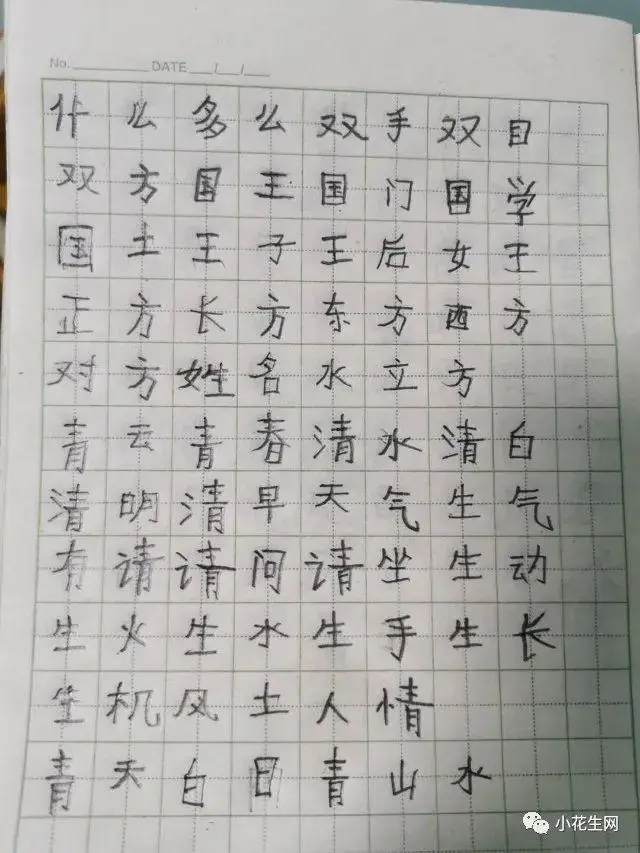 No. DATE / /
什么多么双手双目
双方国王国门国学
国土王子王后女王
正方长方东方西方
对方姓名水立方
青云青春清水清白
清明清早天气生气
有请请问请坐生动
生火生水生手生长
生机风土人情
青天白日青山水
小花生网